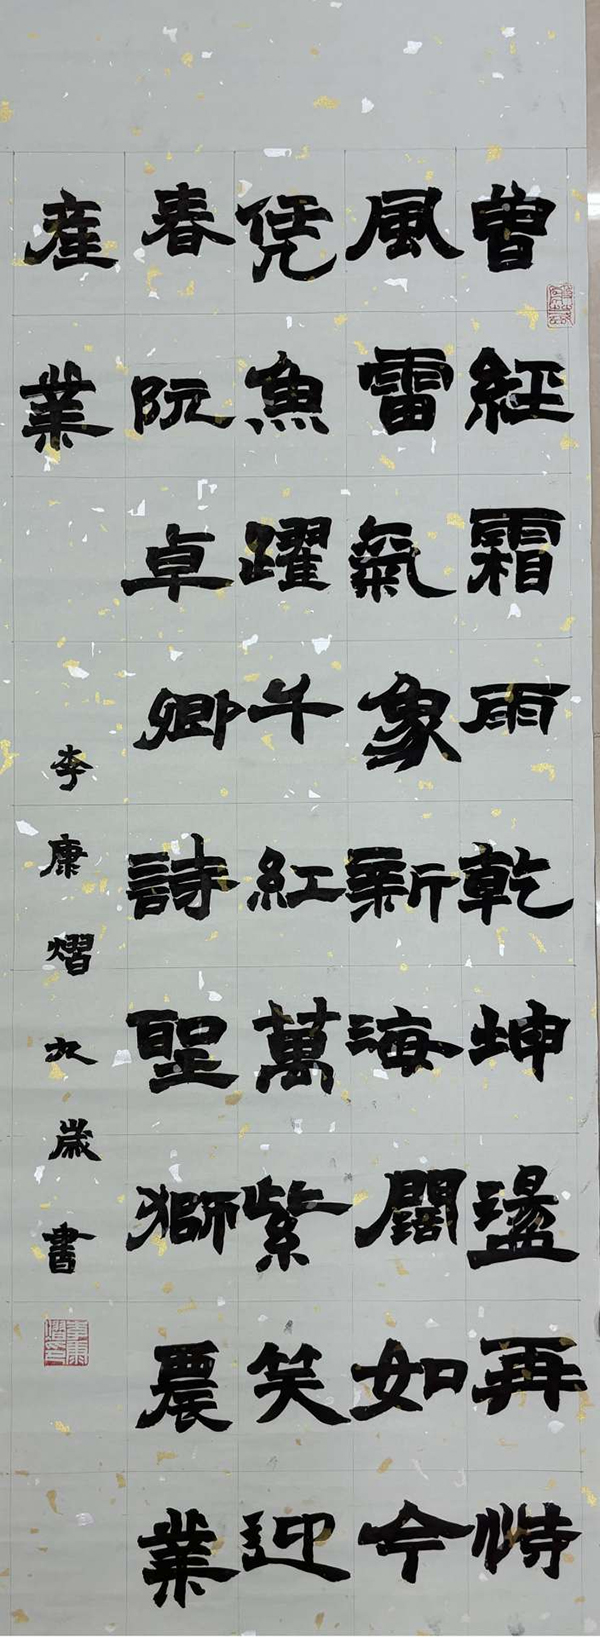 曾經霜雨乾坤盪再恃
風雷氣象新海闊如今
凭魚躍千紅萬紫笑迎
春阮卓卿詩聖獅農業
産業
李康熠九歲書
李康熠印